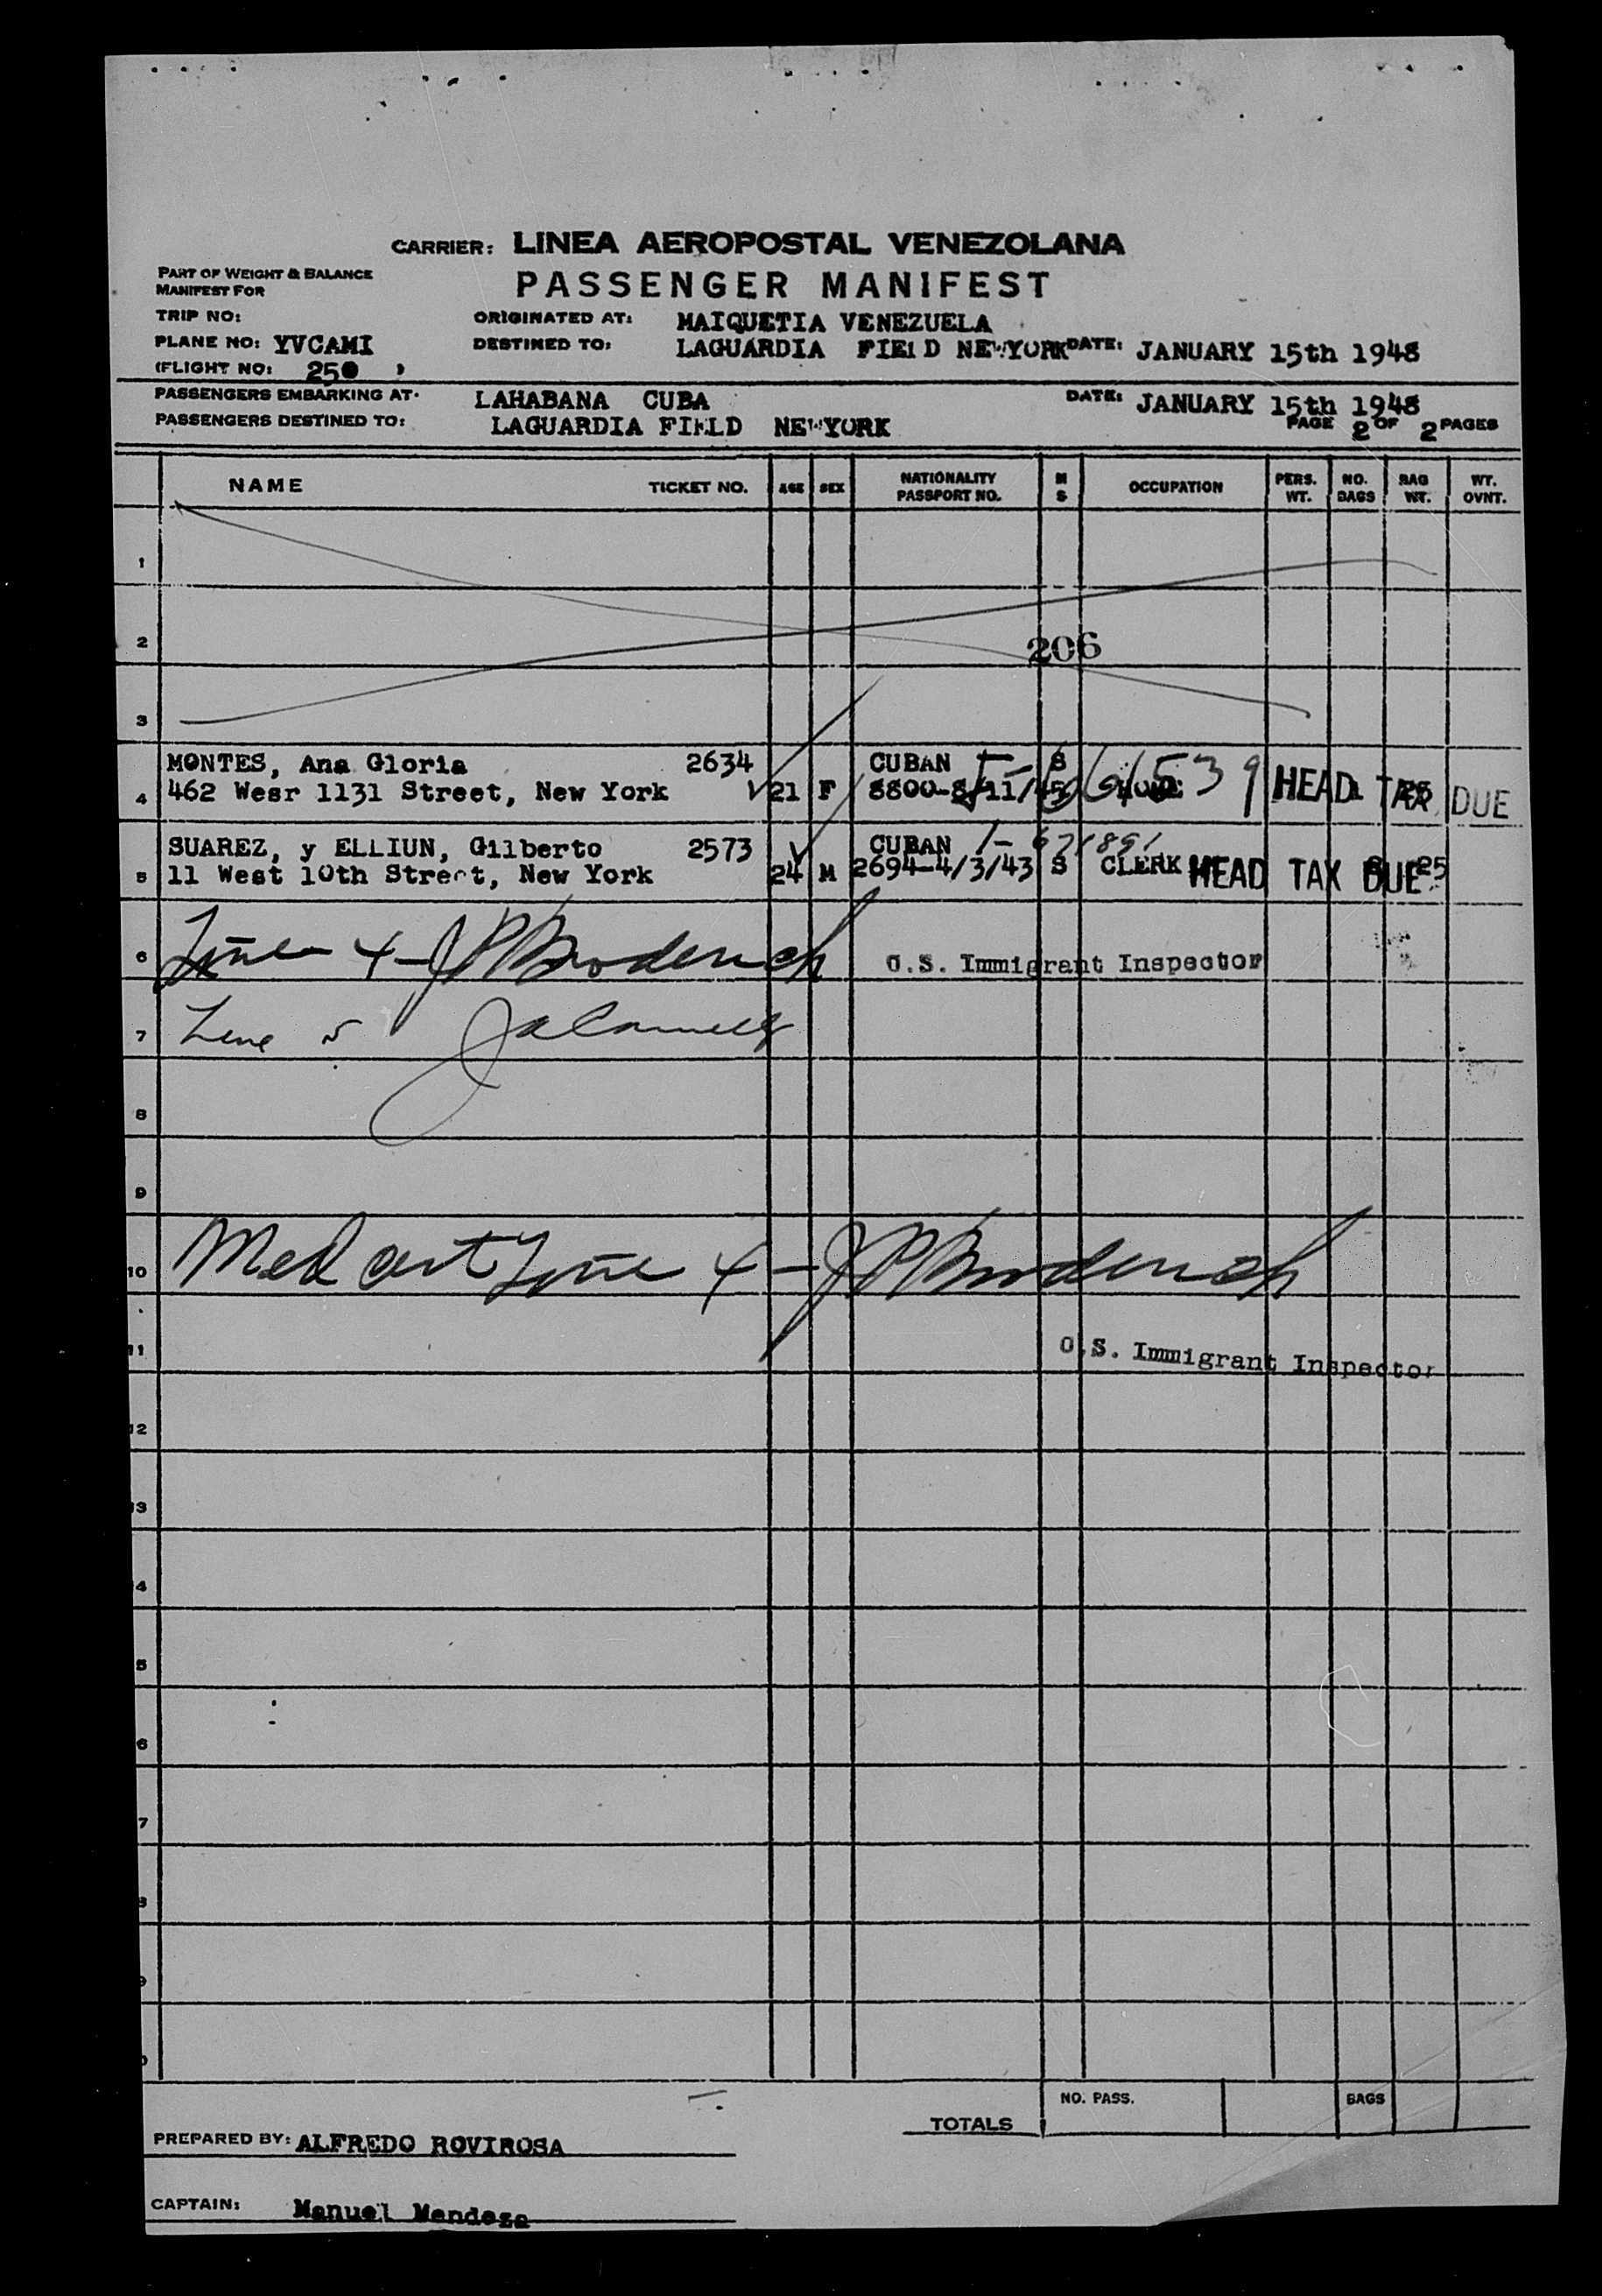 CARRIER: LINEA AEROPOSTAL VENEZOLANA
PART OF WEIGHT & BALANCE
MANIFEST FOR
PASSENGER MANIFEST
TRIP NO:
ORIGINATED AT: MAIQUETIA VENEZUELA
PLANE NO: YVCAMI
DESTINED TO: LAGUARDIA FIELD NEWYORK DATE: JANUARY 15th 1948
(FLIGHT NO: 250 )
PASSENGERS EMBARKING AT: LAHABANA CUBA DATE: JANUARY 15th 1948
PASSENGERS DESTINED TO: LAGUARDIA FIELD NEWYORK PAGE 2 OF 2 PAGES
NAME TICKET NO. AGE SEX NATIONALITY PASSPORT NO. M S OCCUPATION PERS. WT. NO. BAGS BAG WT. WT. OVNT.
1
2
206
3
MONTES, Ana Gloria 2634 CUBAN S
4 462 Wesr 1131 Street, New York 21 F HEAD TAX DUE
SUAREZ, y ELLIUN, Gilberto 2573 CUBAN
5 11 West 10th Street, New York 24 M 2694-4/3/43 S CLERK HEAD TAX DUE 25
6 Line 4 - JP Broderick U.S. Immigrant Inspector
7 Line 5
8
9
10 Med cert Line 4 - JP Broderick
11 U.S. Immigrant Inspector
12
13
4
5
6
7
8
9
0
TOTALS NO. PASS. BAGS
PREPARED BY: ALFREDO ROVIROSA
CAPTAIN: Manuel Mendoza